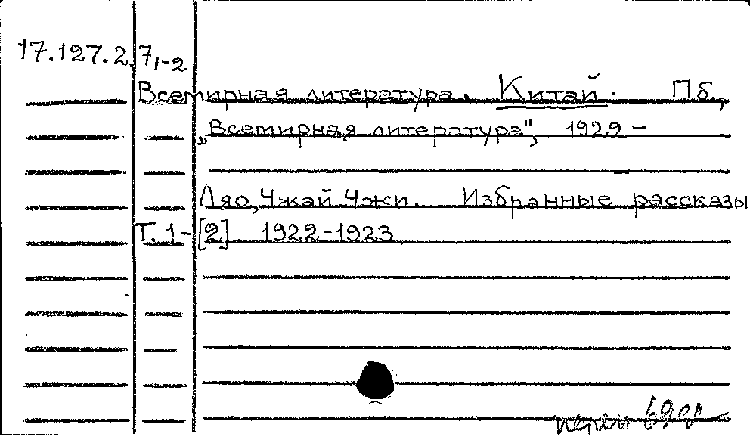 17.127.2. 7,1-2
Всемирная литература. Китай. Пб.,
„Всемирная литература", 1922 –
Ляо, Чжай Чжи. Избранные рассказы
Т. 1-[2] 1922-1923